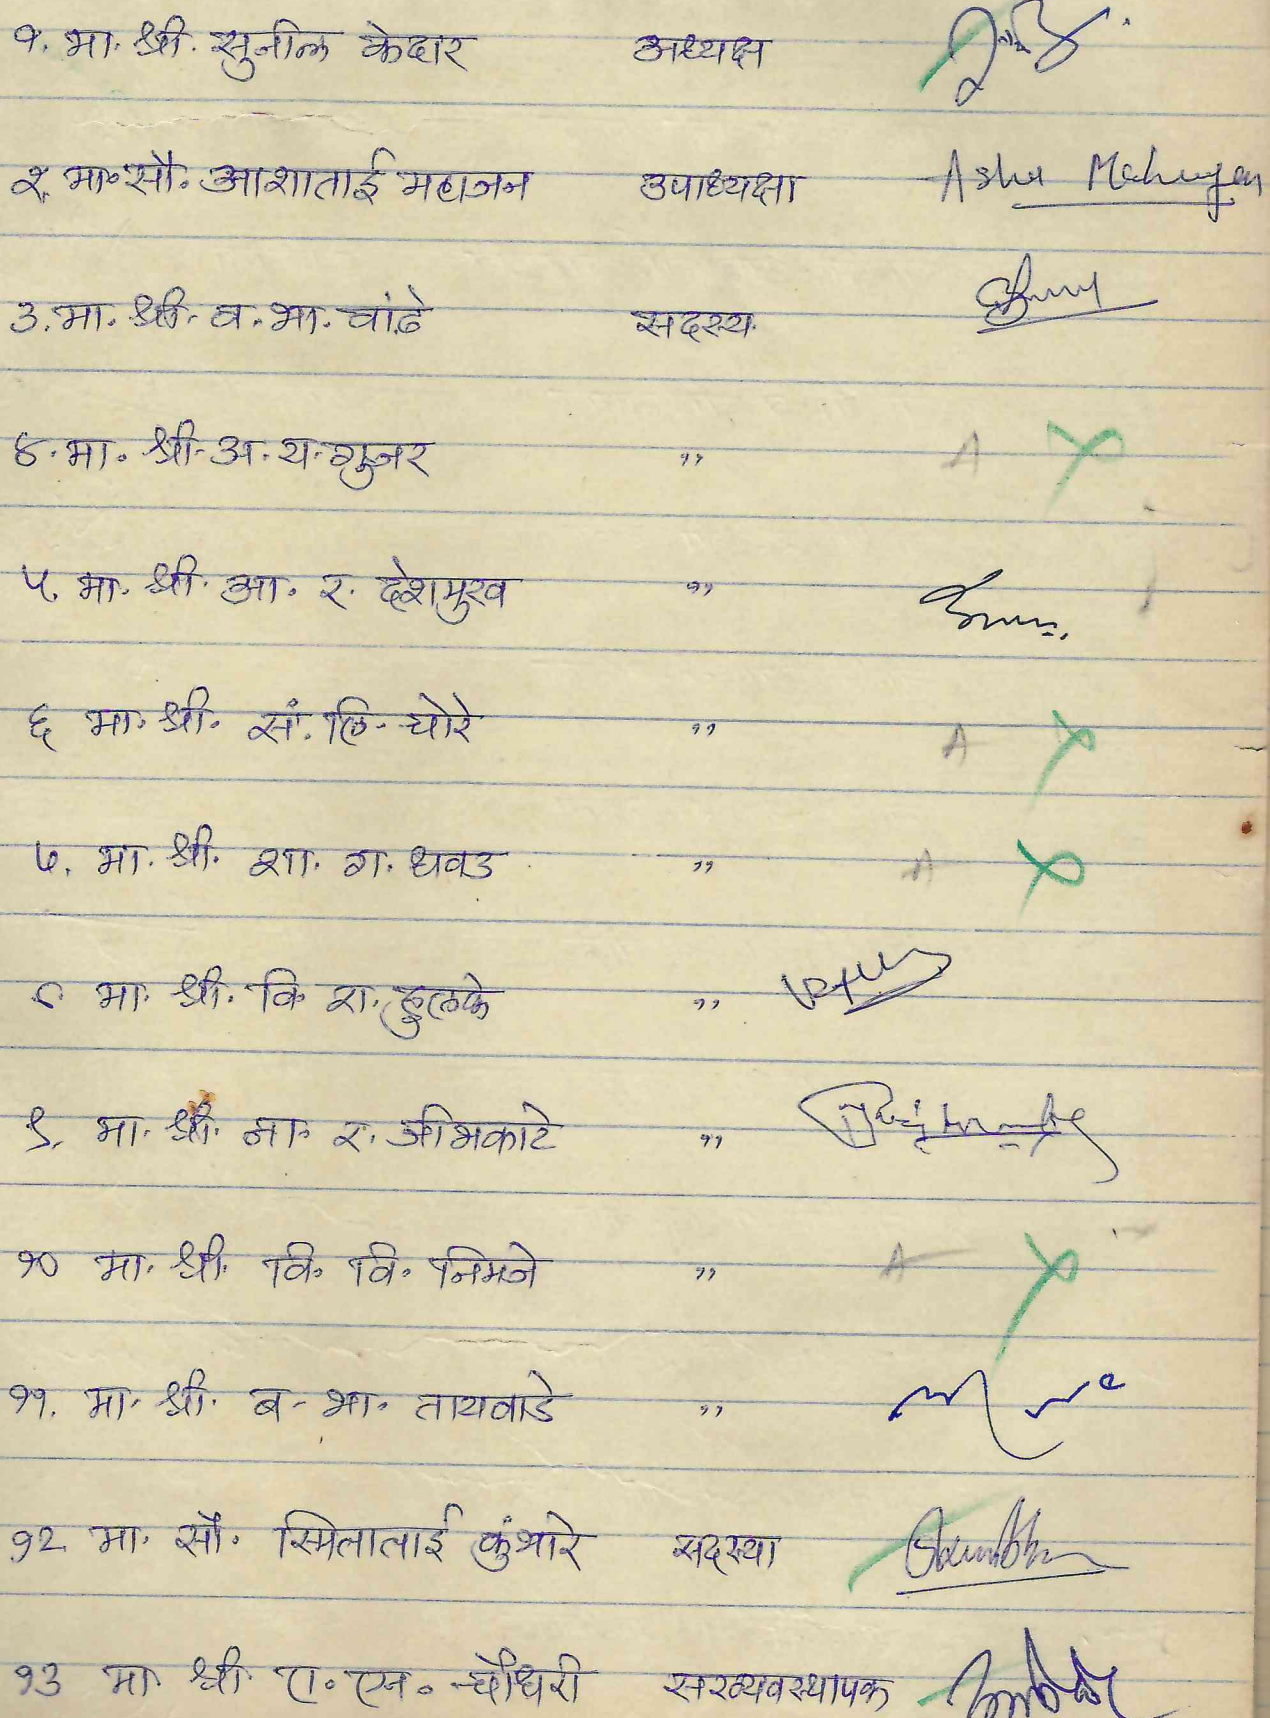 १. मा. श्री. सुनील केदार अध्यक्ष
२. मा. सौ. आशाताई महाजन उपाध्यक्षा Asha Mahajan
३. मा. श्री. व. भा. चांढे सदस्य
४. मा. श्री. अ. य. गुजर ,, A
५. मा. श्री. आ. र. देशमुख ,,
६ मा. श्री. सं. लि. चोरे ,, A
७. मा. श्री. शा. ग. धवड ,, A
८ मा. श्री. कि. रा. हुलके ,,
९. मा. श्री. ना. र. जीभकाटे ,,
१० मा. श्री. वि. वि. निमजे ,, A
११. मा. श्री. ब. भा. तायवाडे ,,
१२ मा. सौ. स्मिताताई कुंभारे सदस्या
१३ मा श्री. ए. एस. चौधरी सरव्यवस्थापक